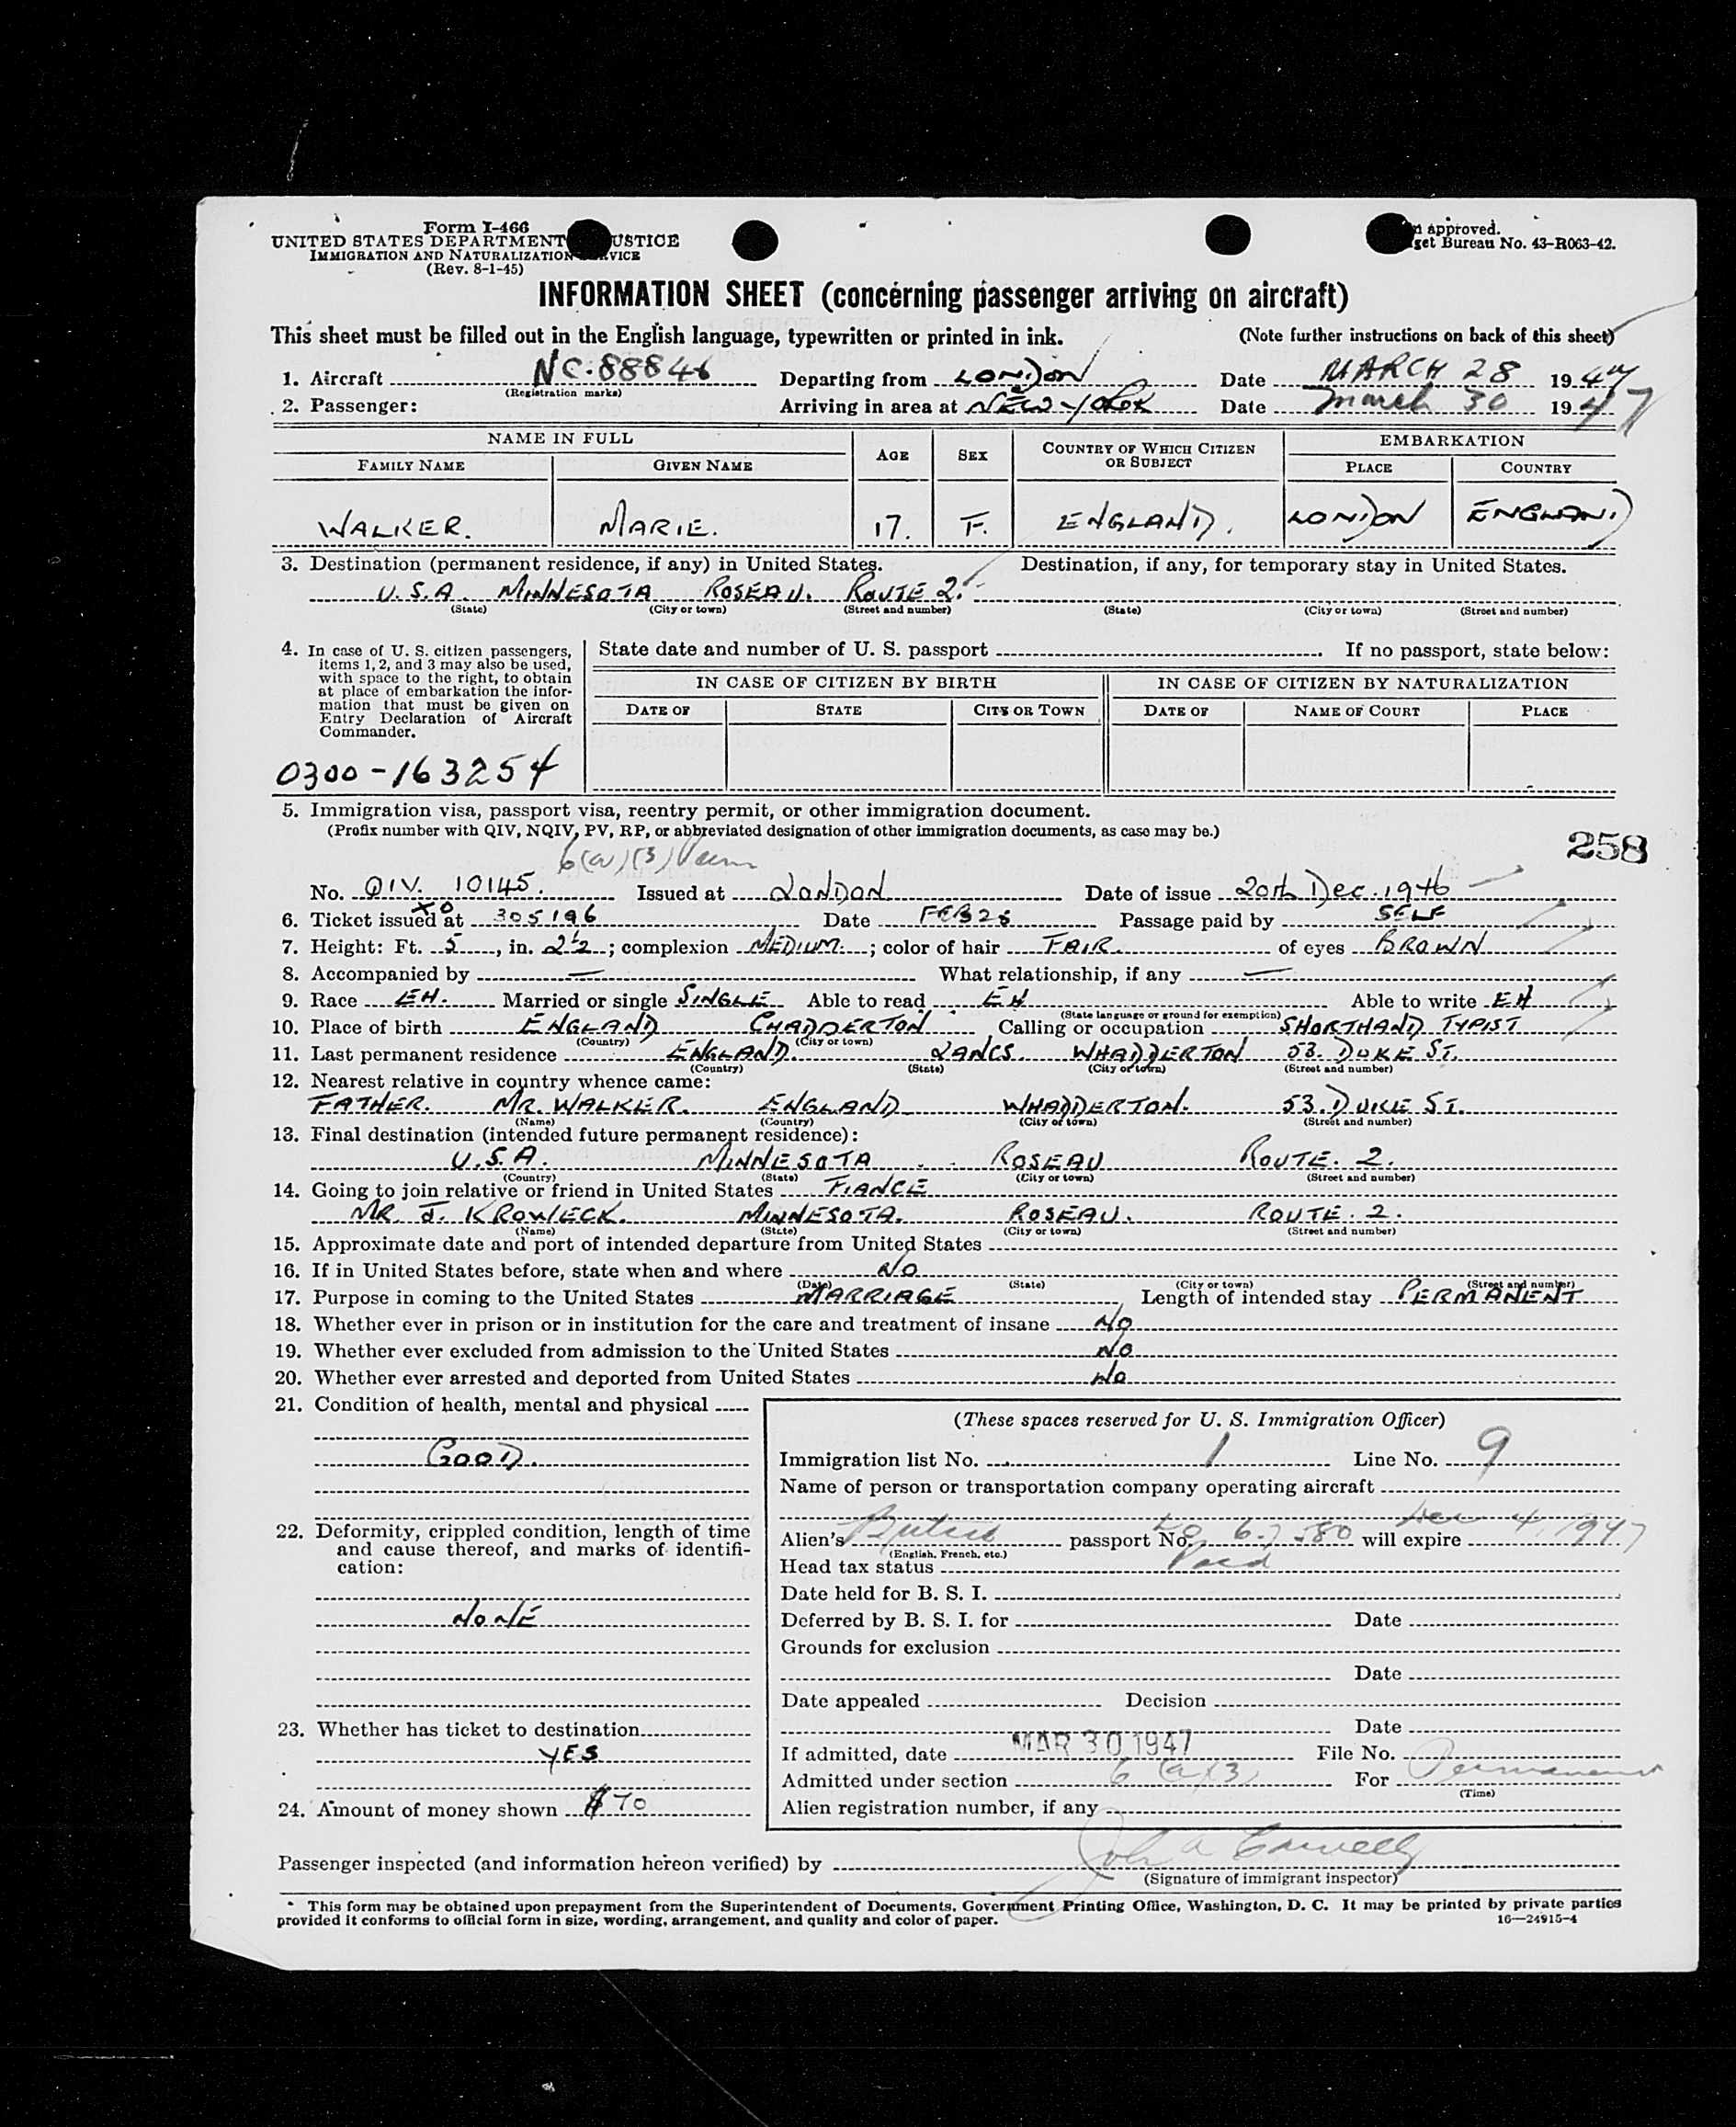 Form I-466
UNITED STATES DEPARTMENT USTICE
IMMIGRATION AND NATURALIZATION VICE
(Rev. 8-1-45)
approved.
get Bureau No. 43-R063-42.
INFORMATION SHEET (concerning passenger arriving on aircraft)
This sheet must be filled out in the English language, typewritten or printed in ink. (Note further instructions on back of this sheet)
1. Aircraft NC.88846 Departing from LONDON Date MARCH 28 1947
(Registration marks)
2. Passenger: Arriving in area at NEW YORK Date March 30 1947
NAME IN FULL AGE SEX COUNTRY OF WHICH CITIZEN OR SUBJECT EMBARKATION
FAMILY NAME GIVEN NAME PLACE COUNTRY
WALKER. MARIE. 17. F. ENGLAND. LONDON ENGLAND
3. Destination (permanent residence, if any) in United States. Destination, if any, for temporary stay in United States.
U.S.A. MINNESOTA ROSEAU. ROUTE 2.
(State) (City or town) (Street and number) (State) (City or town) (Street and number)
4. In case of U. S. citizen passengers,
items 1, 2, and 3 may also be used,
with space to the right, to obtain
at place of embarkation the infor-
mation that must be given on
Entry Declaration of Aircraft
Commander.
0300-163254
State date and number of U. S. passport . If no passport, state below:
IN CASE OF CITIZEN BY BIRTH IN CASE OF CITIZEN BY NATURALIZATION
DATE OF STATE CITY OR TOWN DATE OF NAME OF COURT PLACE
5. Immigration visa, passport visa, reentry permit, or other immigration document.
(Prefix number with QIV, NQIV, PV, RP, or abbreviated designation of other immigration documents, as case may be.)
258
6(a)(3) Perm
No. QIV. 10145. Issued at LONDON Date of issue 20th Dec. 1946
6. Ticket issued at 305196 Date FEB 28 Passage paid by SELF
7. Height: Ft. 5, in. 2½; complexion MEDIUM.; color of hair FAIR. of eyes BROWN
8. Accompanied by — What relationship, if any —
9. Race EH. Married or single SINGLE Able to read EH Able to write EH
(State language or ground for exemption)
10. Place of birth ENGLAND CHADDERTON Calling or occupation SHORTHAND TYPIST
(Country) (City or town)
11. Last permanent residence ENGLAND. LANCS WHADDERTON 53. DUKE ST.
(Country) (State) (City or town) (Street and number)
12. Nearest relative in country whence came:
FATHER. MR. WALKER. ENGLAND WHADDERTON. 53. DUKE ST.
(Name) (Country) (City or town) (Street and number)
13. Final destination (intended future permanent residence):
U.S.A. MINNESOTA ROSEAU ROUTE. 2.
(Country) (State) (City or town) (Street and number)
14. Going to join relative or friend in United States FIANCE
MR. J. KROWECK. MINNESOTA. ROSEAU. ROUTE. 2.
(Name) (State) (City or town) (Street and number)
15. Approximate date and port of intended departure from United States
16. If in United States before, state when and where NO
(Date) (State) (City or town) (Street and number)
17. Purpose in coming to the United States MARRIAGE Length of intended stay PERMANENT
18. Whether ever in prison or in institution for the care and treatment of insane NO
19. Whether ever excluded from admission to the United States NO
20. Whether ever arrested and deported from United States NO
21. Condition of health, mental and physical
GOOD.
22. Deformity, crippled condition, length of time
and cause thereof, and marks of identifi-
cation:
NONE
23. Whether has ticket to destination
YES
24. Amount of money shown $70
(These spaces reserved for U. S. Immigration Officer)
Immigration list No. 1 Line No. 9
Name of person or transportation company operating aircraft
Alien's British passport No. will expire Dec 4, 1947
(English, French, etc.)
Head tax status Paid
Date held for B. S. I.
Deferred by B. S. I. for Date
Grounds for exclusion
Date
Date appealed Decision
Date
If admitted, date MAR 30 1947 File No.
Admitted under section 6(a)(3) For Permanent
(Time)
Alien registration number, if any
Passenger inspected (and information hereon verified) by John A
(Signature of immigrant inspector)
* This form may be obtained upon prepayment from the Superintendent of Documents, Government Printing Office, Washington, D. C. It may be printed by private parties
provided it conforms to official form in size, wording, arrangement, and quality and color of paper. 16—24915-4